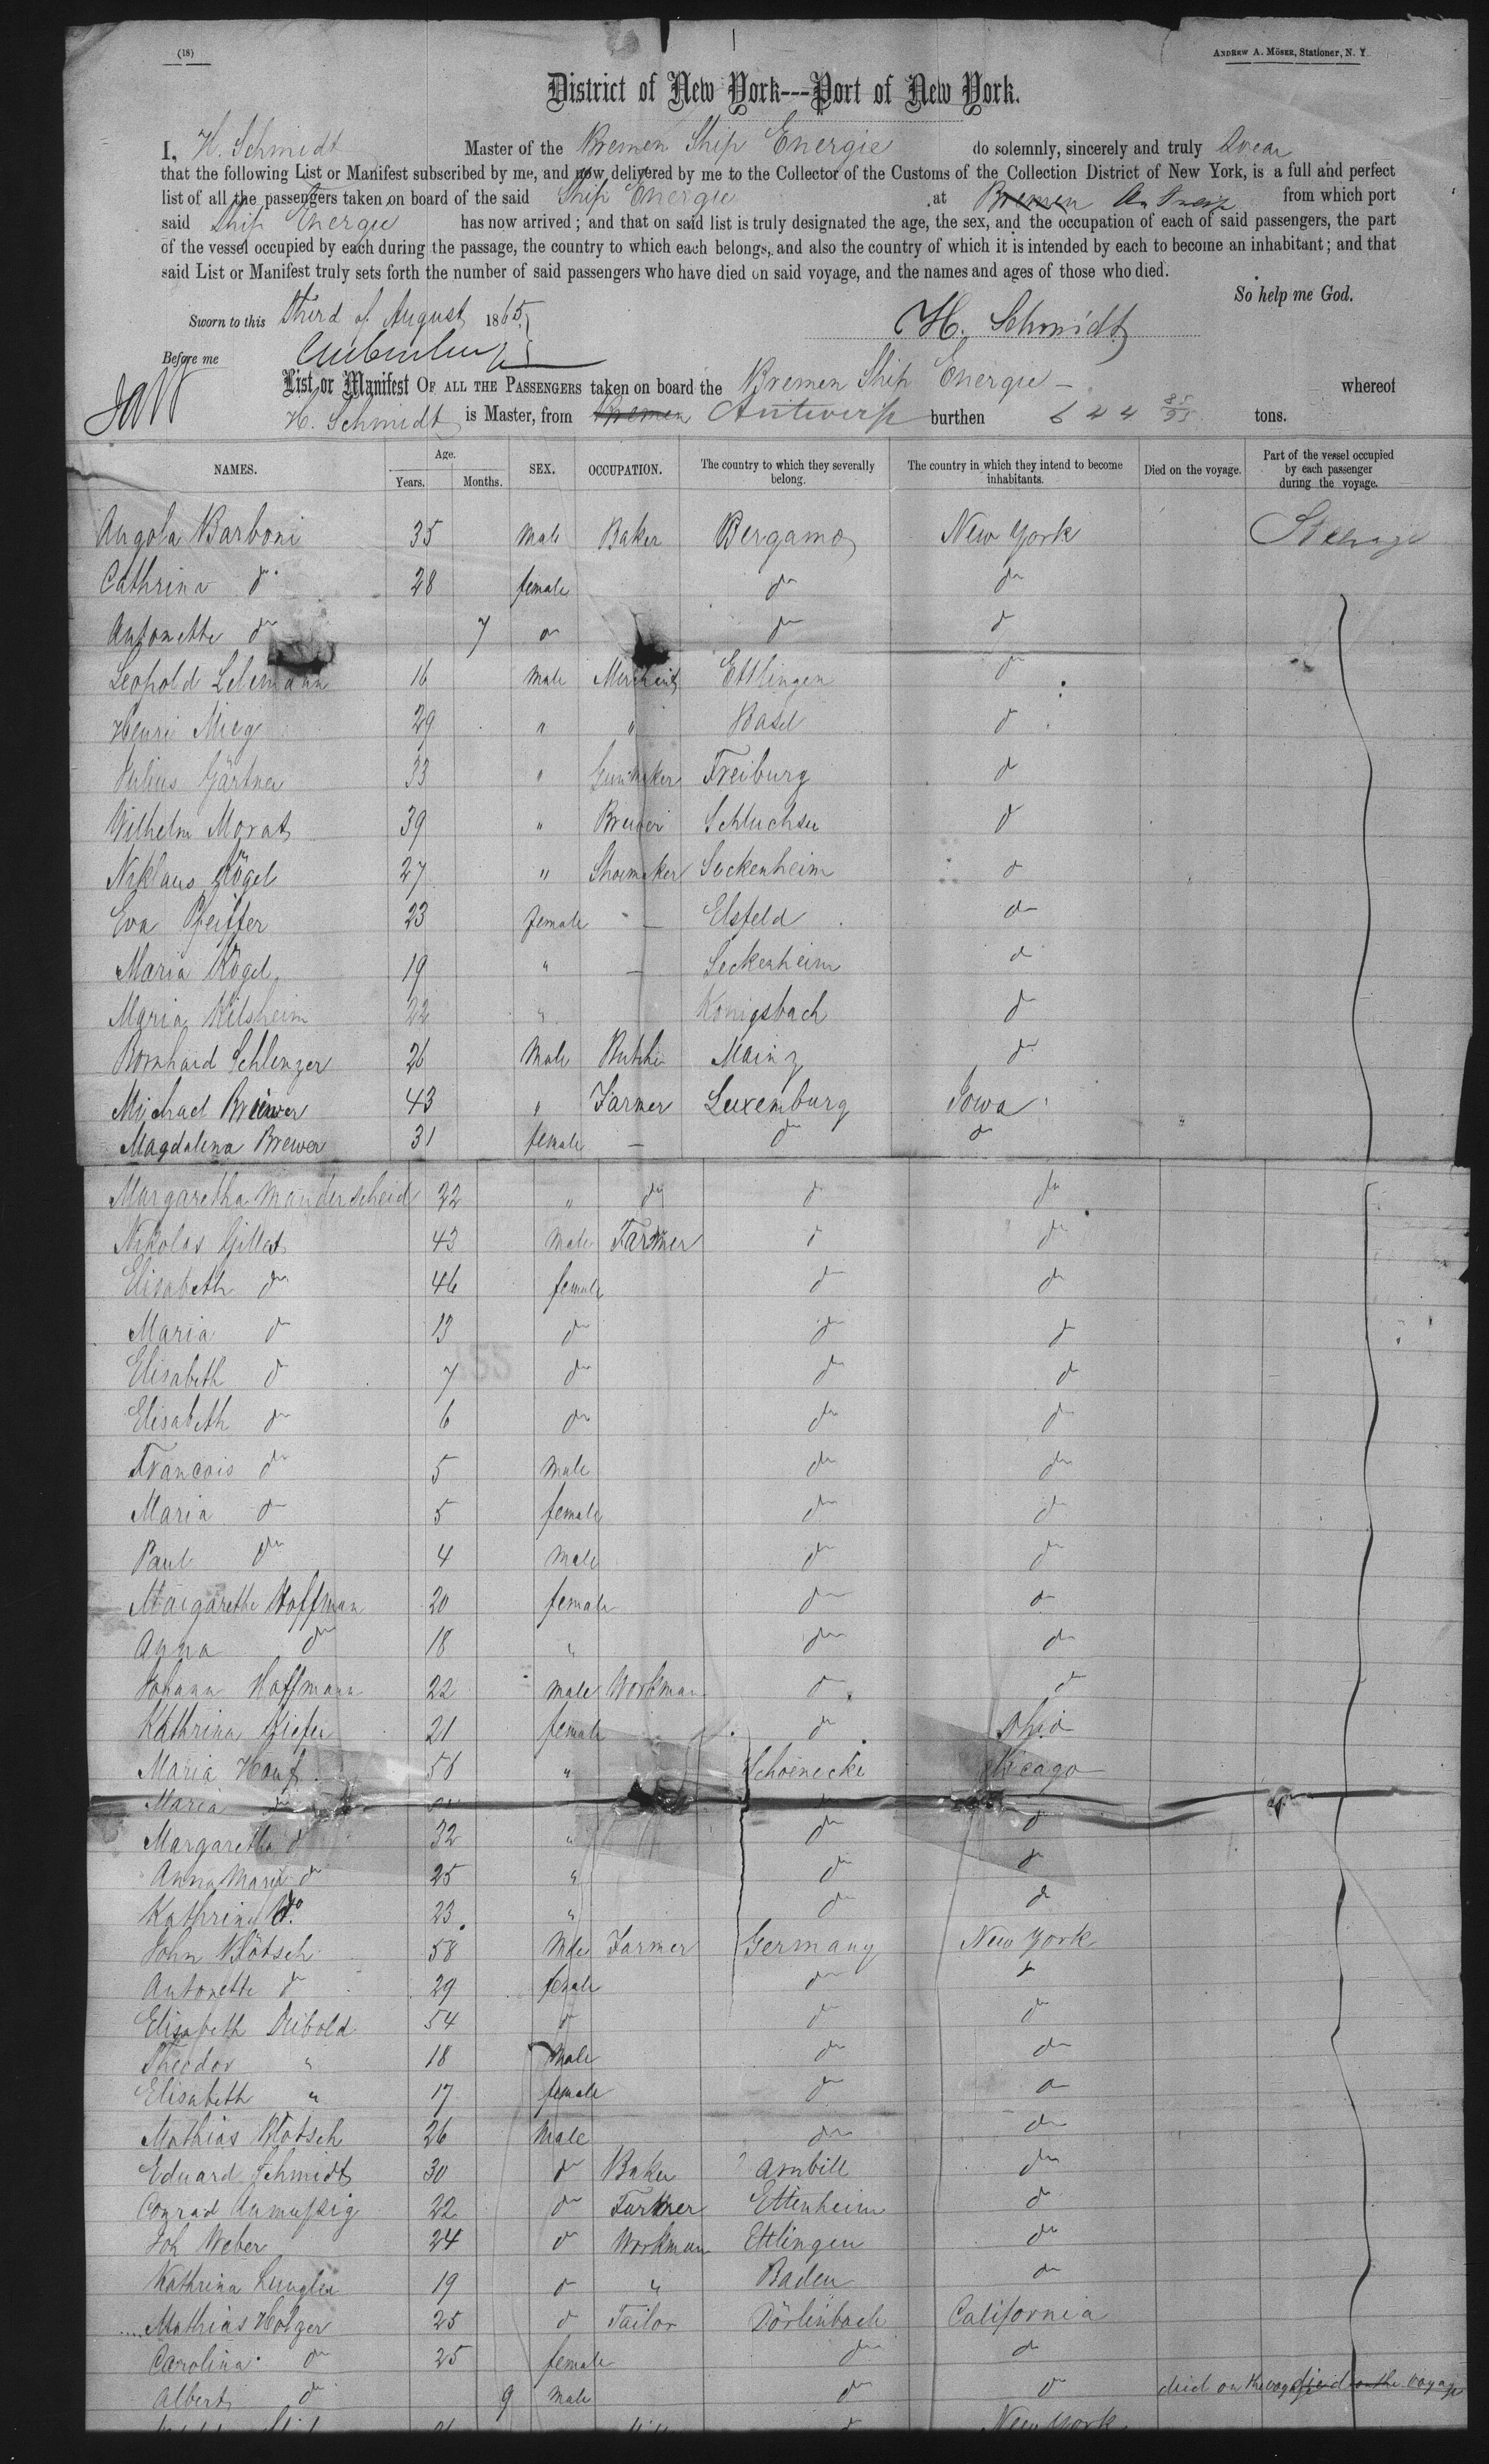 (18)
ANDREW A. MÖSER, Stationer, N. Y.
District of New York---Port of New York.
I, H. Schmidt Master of the Bremen Ship Energie do solemnly, sincerely and truly Swear
that the following List or Manifest subscribed by me, and now delivered by me to the Collector of the Customs of the Collection District of New York, is a full and perfect
list of all the passengers taken on board of the said Ship Energie at Bremen Antwerp from which port
said Ship Energie has now arrived; and that on said list is truly designated the age, the sex, and the occupation of each of said passengers, the part
of the vessel occupied by each during the passage, the country to which each belongs, and also the country of which it is intended by each to become an inhabitant; and that
said List or Manifest truly sets forth the number of said passengers who have died on said voyage, and the names and ages of those who died.
So help me God.
Sworn to this Third of August 1865
H. Schmidt
Before me
List or Manifest OF ALL THE PASSENGERS taken on board the Bremen Ship Energie whereof
H. Schmidt is Master, from Bremen Antwerp burthen 624 85/95 tons.
NAMES. Age. Years. Months. SEX. OCCUPATION. The country to which they severally belong. The country in which they intend to become inhabitants. Died on the voyage. Part of the vessel occupied by each passenger during the voyage.
Angola Barboni 35 Male Baker Bergamo New York Steerage
Cathrina do 28 female do do
Antonette do 7 do do do
Leopold 16 Male Merchant Ettlingen do
Henri Mieg 29 " " Basel do
Julius Gärtner 33 " Gunmaker Freiburg do
Wilhelm Morat 39 " Brewer Schluchsee do
Niklaus Kögel 27 " Shoemaker Seckenheim do
Eva Pfeiffer 23 female — Elsfeld do
Maria Kögel 19 " — Seckenheim do
Maria Kilsheim 22 " Konigsbach do
Bernhard Schlenzer 26 Male Butcher Mainz do
Michael Brewer 43 " Farmer Luxemburg Iowa
Magdalena Brewer 31 female — do do
Margaretha Manderscheid 32 " do do do
Nikolas Gillet 43 Male Farmer do do
Elisabeth do 46 female do do
Maria do 13 do do do
Elisabeth do 7 do do do
Elisabeth do 6 do do do
Francois do 5 Male do do
Maria do 5 female do do
Paul do 4 Male do do
Margarethe Hoffman 20 female do do
Anna do 18 " do do
Johann Hoffmann 22 male Workman do do
Kathrina Kiefer 21 female do Ohio
Maria Hauf 56 " Schoenecke Chicago
Maria do
Margaretha do 32 " do do
Anna Maria do 25 " do do
Kathrina do 23 " do do
John Klötsch 58 Mle Farmer Germany New York
Antonette do 29 female do do
Elisabeth Deibold 54 do do do
Theodor " 18 Male do do
Elisabeth " 17 female do do
Mathias Klotsch 26 Male do do
Eduard Schmidt 30 do Baker do
Conrad 22 do Farmer Ettenheim do
Joh Weber 24 do Workman Ettlingen do
Kathrina 19 do " Baden do
Mathias Holzer 25 do Tailor Dörlinbach California
Carolina do 25 female do do
Albert do 9 Male do do died on the voyage died on the voyage
New York